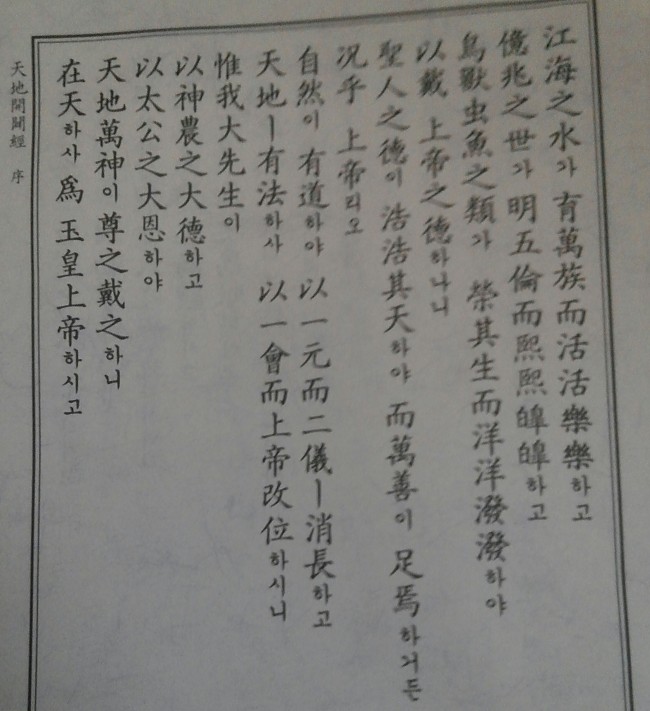 江海之水가 有萬族而活活樂樂하고
億兆之世가 明五倫而熙熙皥皥하고
鳥獸虫魚之類가 榮其生而洋洋潑潑하야
以戴 上帝之德하나니
聖人之德이 浩浩其天하야 而萬善이 足焉하거든
况乎 上帝리오
自然이 有道하야 以一元而二儀ㅣ消長하고
天地ㅣ有法하사 以一會而上帝改位하시니
惟我大先生이
以神農之大德하고
以太公之大恩하야
天地萬神이 尊之戴之하니
在天하사 爲 玉皇上帝하시고
天地開闢經 序